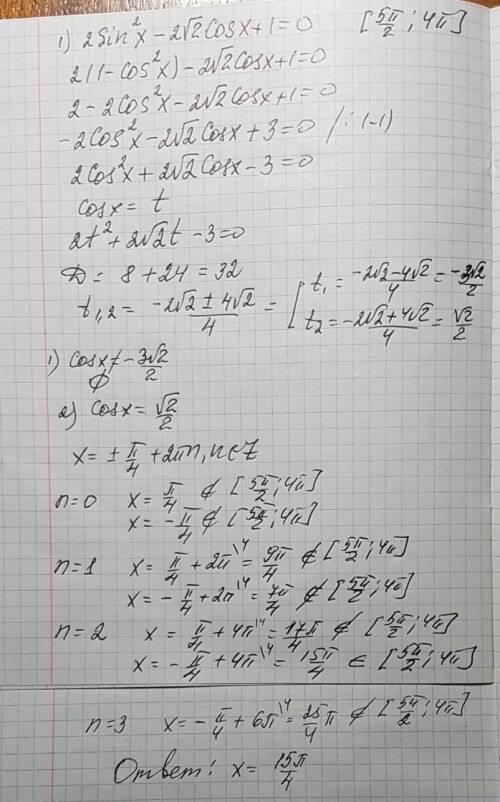 1) 2Sin²x - 2√2 Cosx + 1 = 0 [5π/2; 4π]
2(1 - Cos²x) - 2√2 Cosx + 1 = 0
2 - 2Cos²x - 2√2 Cosx + 1 = 0
-2Cos²x - 2√2 Cosx + 3 = 0 /: (-1)
2Cos²x + 2√2 Cosx - 3 = 0
Cosx = t
2t² + 2√2t - 3 = 0
D = 8 + 24 = 32
t₁,₂ = (-2√2 ± 4√2)/4 = [ t₁ = (-2√2 - 4√2)/4 = -3√2/2
t₂ = (-2√2 + 4√2)/4 = √2/2
1) Cosx ≠ -3√2/2
∅
2) Cosx = √2/2
x = ± π/4 + 2πn, n∈Z
n=0 x = π/4 ∉ [5π/2; 4π]
x = -π/4 ∉ [5π/2; 4π]
n=1 x = π/4 + 2π\4 = 9π/4 ∉ [5π/2; 4π]
x = -π/4 + 2π\4 = 7π/4 ∉ [5π/2; 4π]
n=2 x = π/4 + 4π\4 = 17π/4 ∉ [5π/2; 4π]
x = -π/4 + 4π\4 = 15π/4 ∈ [5π/2; 4π]
n=3 x = -π/4 + 6π\4 = 25/4 π ∉ [5π/2; 4π]
Ответ: x = 15π/4